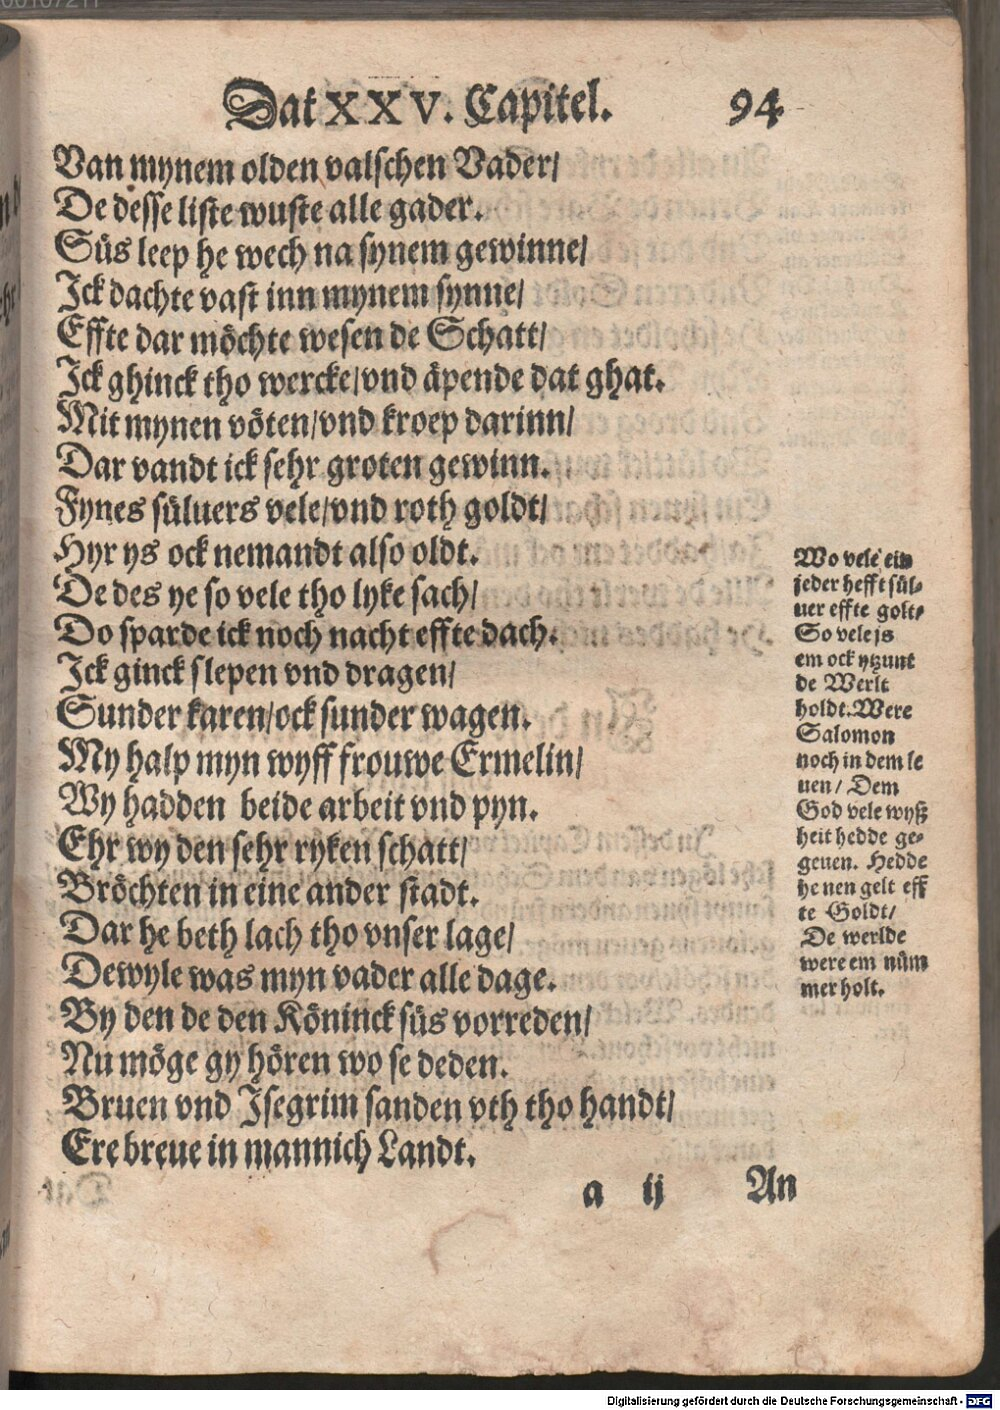 Dat XXV. Capitel. 94
Van mynem olden valschen Vader/
De desse liste wuste alle gader.
Süs leep he wech na synem gewinne/
Ick dachte vast inn mynem synne/
Effte dar möchte wesen de Schatt/
Ick ghinck tho wercke/vnd äpende dat ghat.
Mit mynen vöten/vnd kroep darinn/
Dar vandt ick sehr groten gewinn.
Fynes süluers vele/vnd roth goldt/
Hyr ys ock nemandt also oldt.
De des ye so vele tho lyke sach/
Do sparde ick noch nacht effte dach.
Ick ginck slepen vnd dragen/
Sunder karen/ock sunder wagen.
My halp myn wyff frouwe Ermelin/
Wy hadden beide arbeit vnd pyn.
Ehr wy den sehr ryken schatt/
Bröchten in eine ander stadt.
Dar he beth lach tho vnser lage/
Dewyle was myn vader alle dage.
By den de den Köninck süs vorreden/
Nu möge gy hören wo se deden.
Bruen vnd Isegrim sanden vth tho handt/
Ere breue in mannich Landt.
a ij An
Wo vele ein
jeder hefft sül-
uer effte golt/
So vele js
em ock ytzunt
de Werlt
holdt. Were
Salomon
noch in dem le
uen/ Dem
God vele wyß
heit hedde ge-
geuen. Hedde
he nen gelt eff
te Goldt/
De werlde
were em nüm
mer holt.
Digitalisierung gefördert durch die Deutsche Forschungsgemeinschaft - DFG